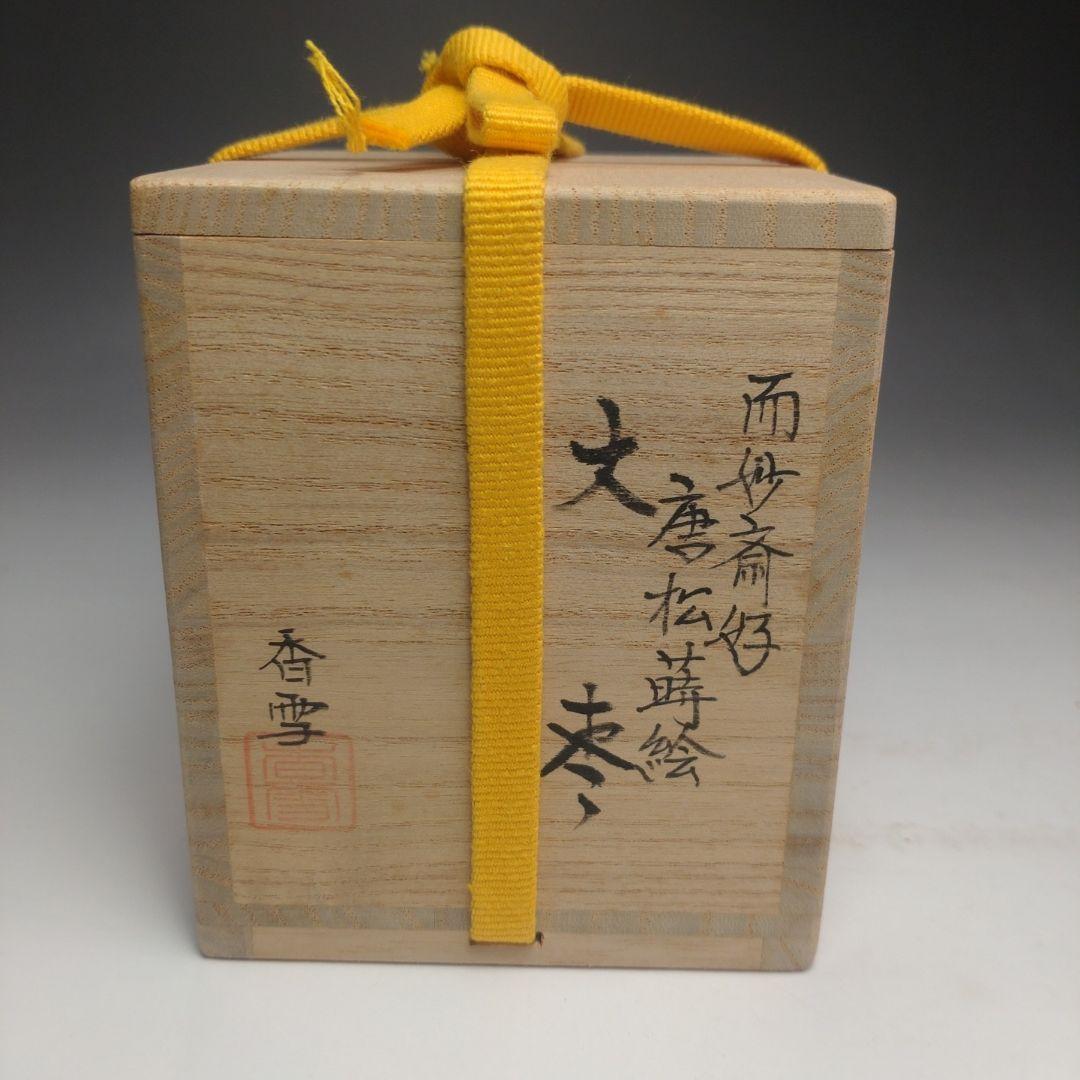 而妙斎好
唐松蒔絵
大棗
香雪